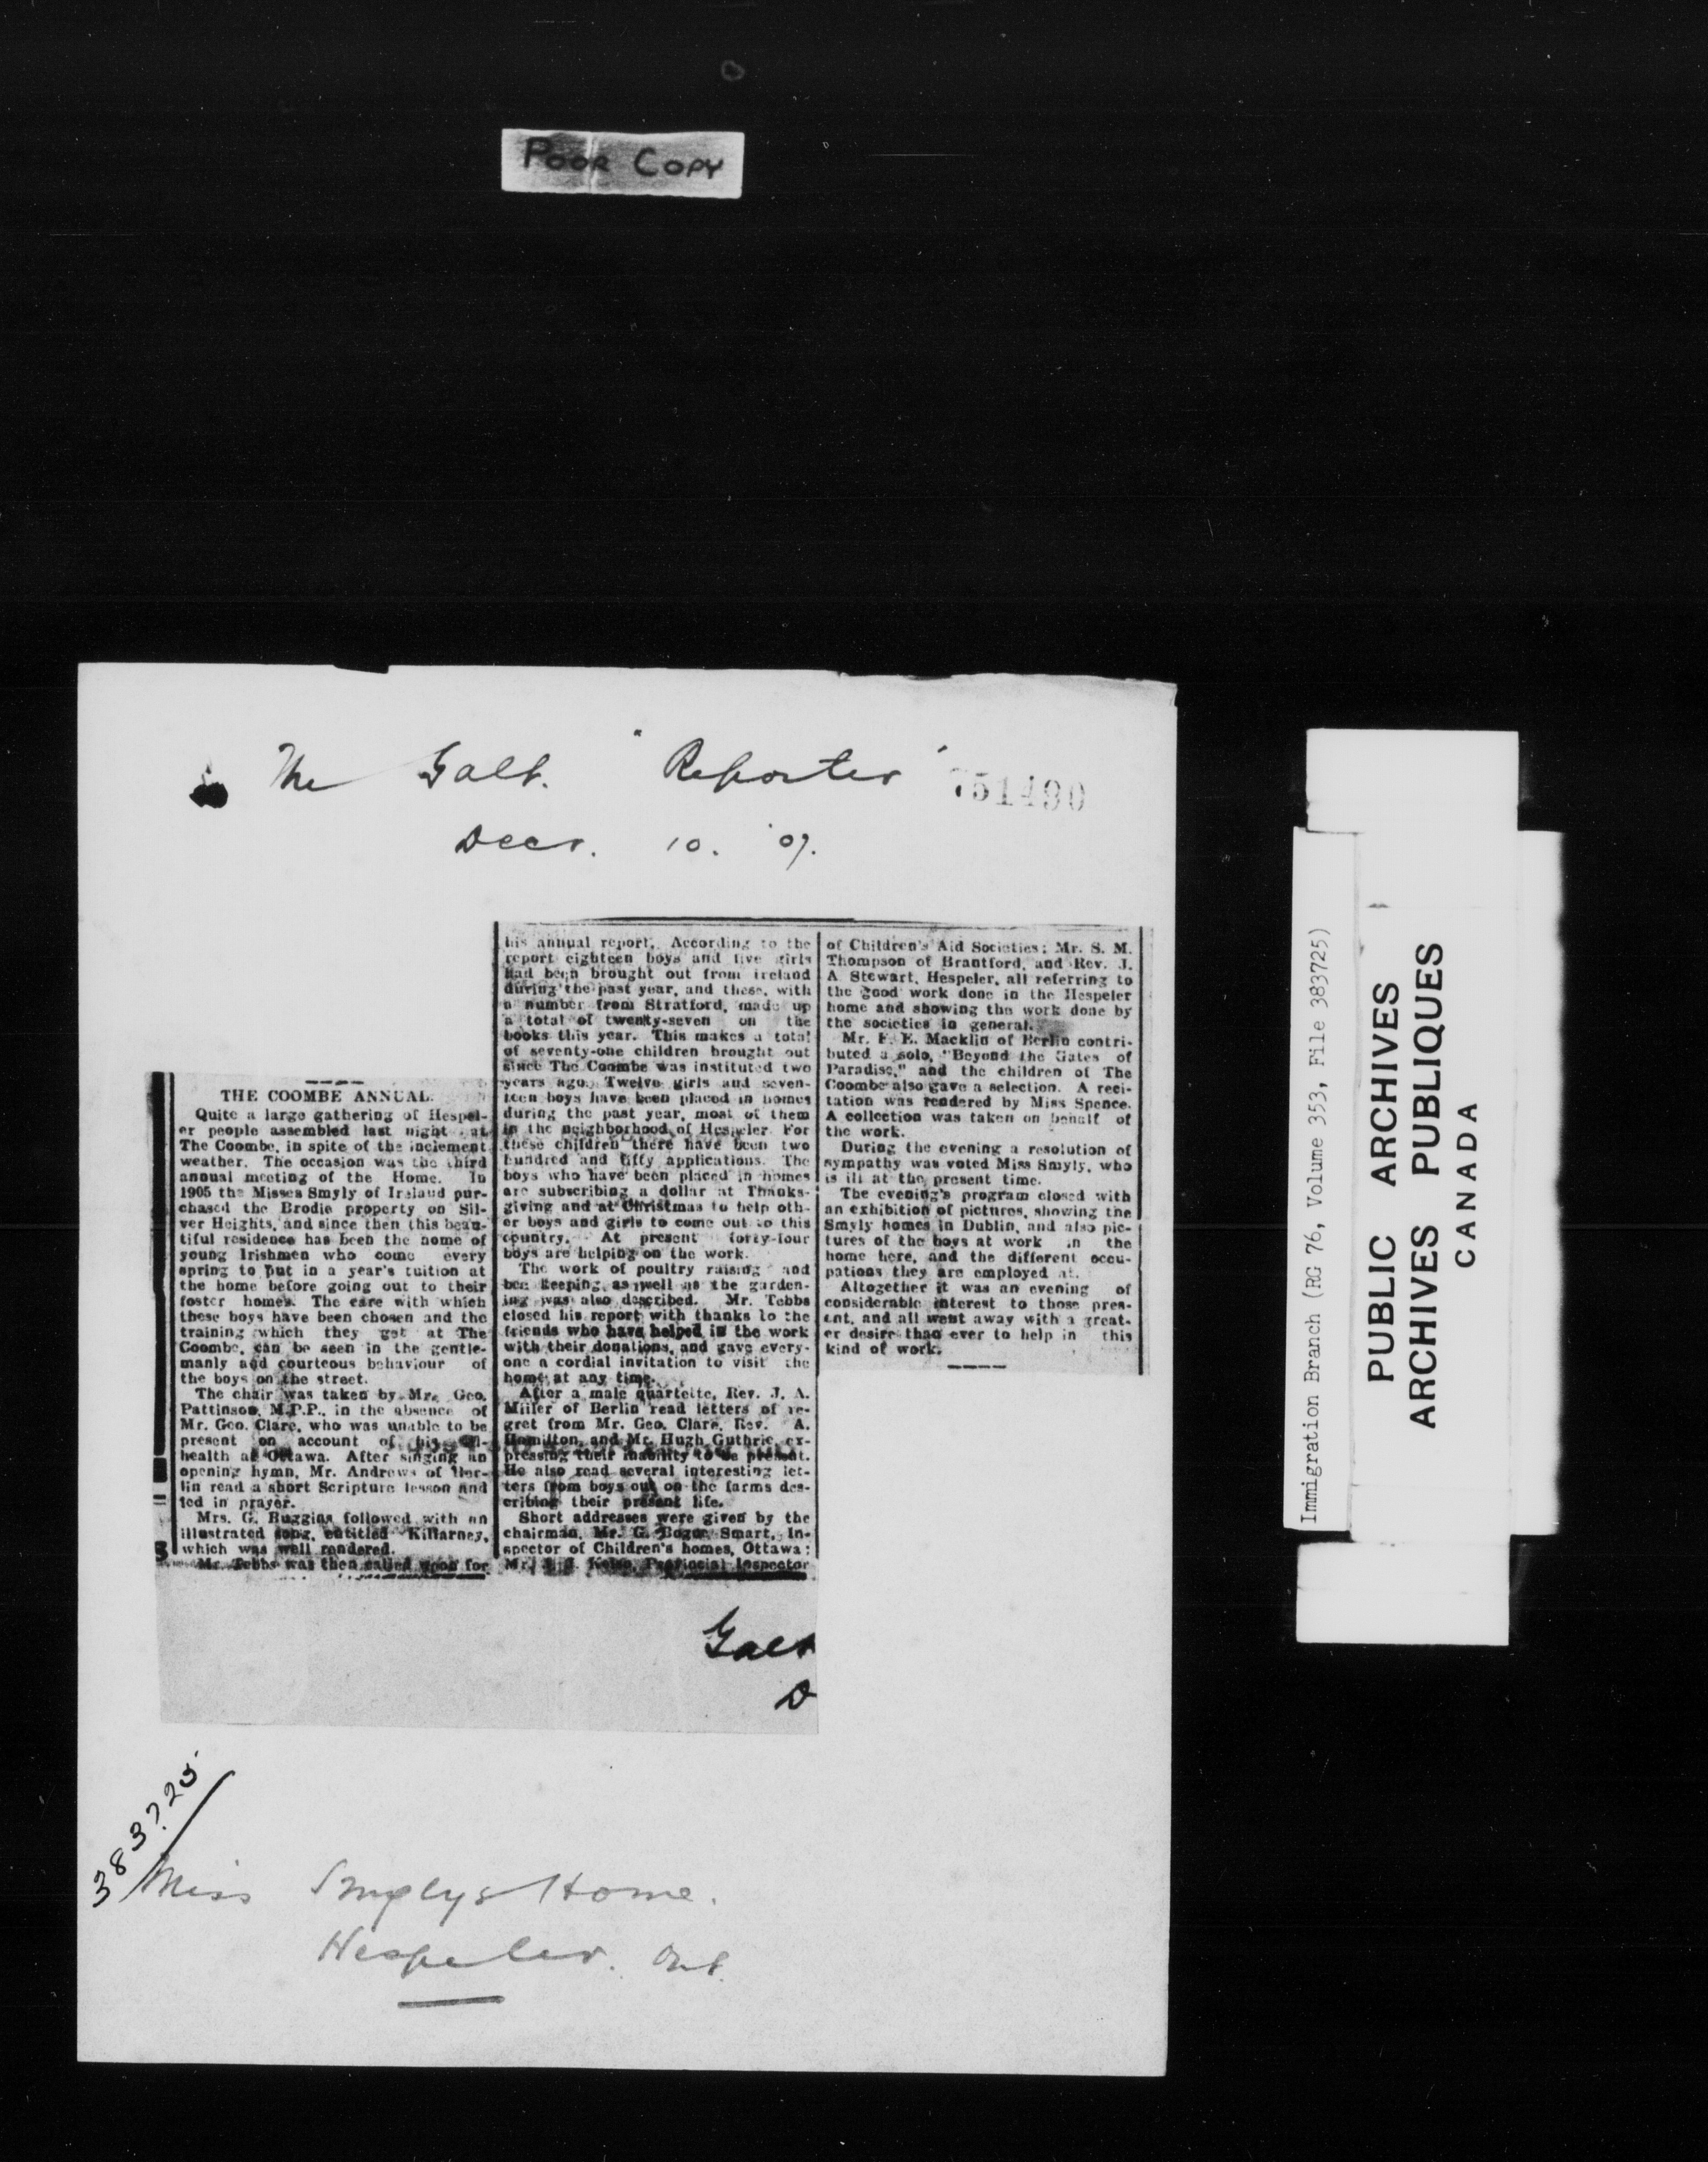 POOR COPY
The Galt. "Reporter"
751490
Decr. 10. '07.
THE COOMBE ANNUAL.
Quite a large gathering of Hespel-
er people assembled last night at
The Coombe, in spite of the inclement
weather. The occasion was the third
annual meeting of the Home. In
1905 the Misses Smyly of Ireland pur-
chased the Brodie property on Sil-
ver Heights, and since then this beau-
tiful residence has been the home of
young Irishmen who come every
spring to put in a year's tuition at
the home before going out to their
foster homes. The care with which
these boys have been chosen and the
training which they get at The
Coombe, can be seen in the gentle-
manly and courteous behaviour of
the boys on the street.
The chair was taken by Mr. Geo.
Pattinson, M.P.P., in the absence of
Mr. Geo. Clare, who was unable to be
present on account of his ill-
health at Ottawa. After singing an
opening hymn, Mr. Andrews of Ber-
lin read a short Scripture lesson and
led in prayer.
Mrs. G. Ruggins followed with an
illustrated song, entitled Killarney,
which was well rendered.
Mr. Tebbs was then called upon for
his annual report. According to the
report eighteen boys and five girls
had been brought out from Ireland
during the past year, and these, with
a number from Stratford, made up
a total of twenty-seven on the
books this year. This makes a total
of seventy-one children brought out
since The Coombe was instituted two
years ago. Twelve girls and seven-
teen boys have been placed in homes
during the past year, most of them
in the neighborhood of Hespeler. For
these children there have been two
hundred and fifty applications. The
boys who have been placed in homes
are subscribing a dollar at Thanks-
giving and at Christmas to help oth-
er boys and girls to come out to this
country. At present forty-four
boys are helping on the work.
The work of poultry raising and
bee keeping, as well as the garden-
ing was also described. Mr. Tebbs
closed his report with thanks to the
friends who have helped in the work
with their donations, and gave every-
one a cordial invitation to visit the
home at any time.
After a male quartette, Rev. J. A.
Miller of Berlin read letters of re-
gret from Mr. Geo. Clare, Rev. A.
Hamilton, and Mr. Hugh Guthrie, ex-
pressing their inability to be present.
He also read several interesting let-
ters from boys out on the farms des-
cribing their present life.
Short addresses were given by the
chairman, Mr. G. Bogue Smart, In-
spector of Children's homes, Ottawa;
Mr. Kelso, Provincial Inspector
of Children's Aid Societies; Mr. S. M.
Thompson of Brantford, and Rev. J.
A. Stewart, Hespeler, all referring to
the good work done in the Hespeler
home and showing the work done by
the societies in general.
Mr. F. E. Macklin of Berlin contri-
buted a solo, "Beyond the Gates of
Paradise," and the children of The
Coombe also gave a selection. A reci-
tation was rendered by Miss Spence.
A collection was taken on behalf of
the work.
During the evening a resolution of
sympathy was voted Miss Smyly, who
is ill at the present time.
The evening's program closed with
an exhibition of pictures, showing the
Smyly homes in Dublin, and also pic-
tures of the boys at work in the
home here, and the different occu-
pations they are employed at.
Altogether it was an evening of
considerable interest to those pres-
ent, and all went away with a great-
er desire than ever to help in this
kind of work.
Galt
D
383725
Miss Smylys Home.
Hespeler. Ont.
Immigration Branch (RG 76, Volume 353, File 383725)
PUBLIC ARCHIVES
ARCHIVES PUBLIQUES
CANADA